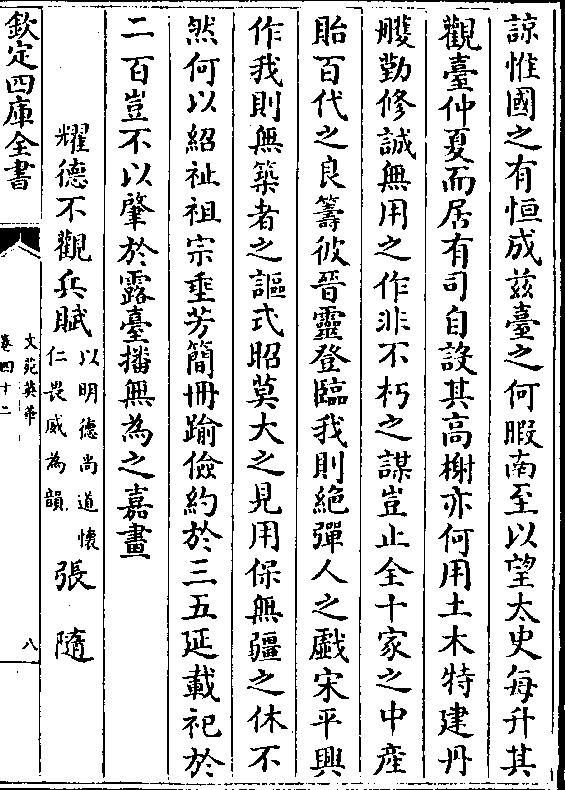 諒惟國之有恒成兹臺之何暇南至以望太史每升其
觀臺仲夏而居有司自設其高榭亦何用土木特建丹
雘勤修誠無用之作非不朽之謀豈止全十家之中產
貽百代之良籌彼晉靈登臨我則絕彈人之戲宋平興
作我則無築者之謳式昭莫大之見用保無疆之休不
然何以紹祉祖宗垂芳簡冊踰儉約於三五延載祀於
二百豈不以肇於露臺播無為之嘉畫
耀德不觀兵賦以明德尚道懷仁畏威為韻 張隨
欽定四庫全書
文苑英華
卷四十二
八